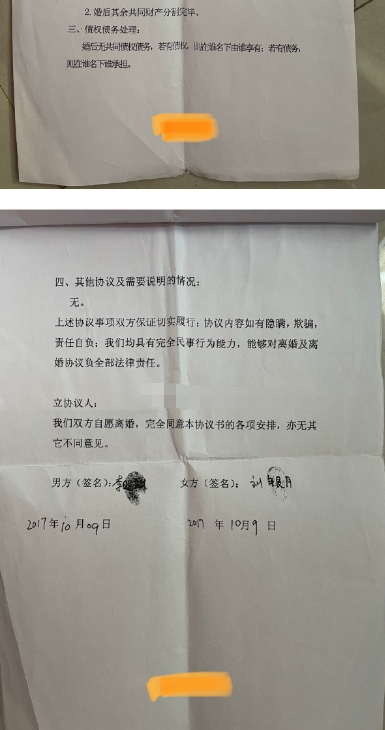 2. 婚后其余共同财产分割完毕。
三、债权债务处理：
婚后无共同债权债务，若有债权，则在谁名下由谁享有；若有债务，
则在谁名下谁承担。
四、其他协议及需要说明的情况：
无。
上述协议事项双方保证切实履行；协议内容如有隐瞒，欺骗，
责任自负；我们均具有完全民事行为能力，能够对离婚及离
婚协议负全部法律责任。
立协议人：
我们双方自愿离婚，完全同意本协议书的各项安排，亦无其
它不同意见。
男方（签名）：李 女方（签名）：刘 月
2017年10月09日 2017 年 10月9 日